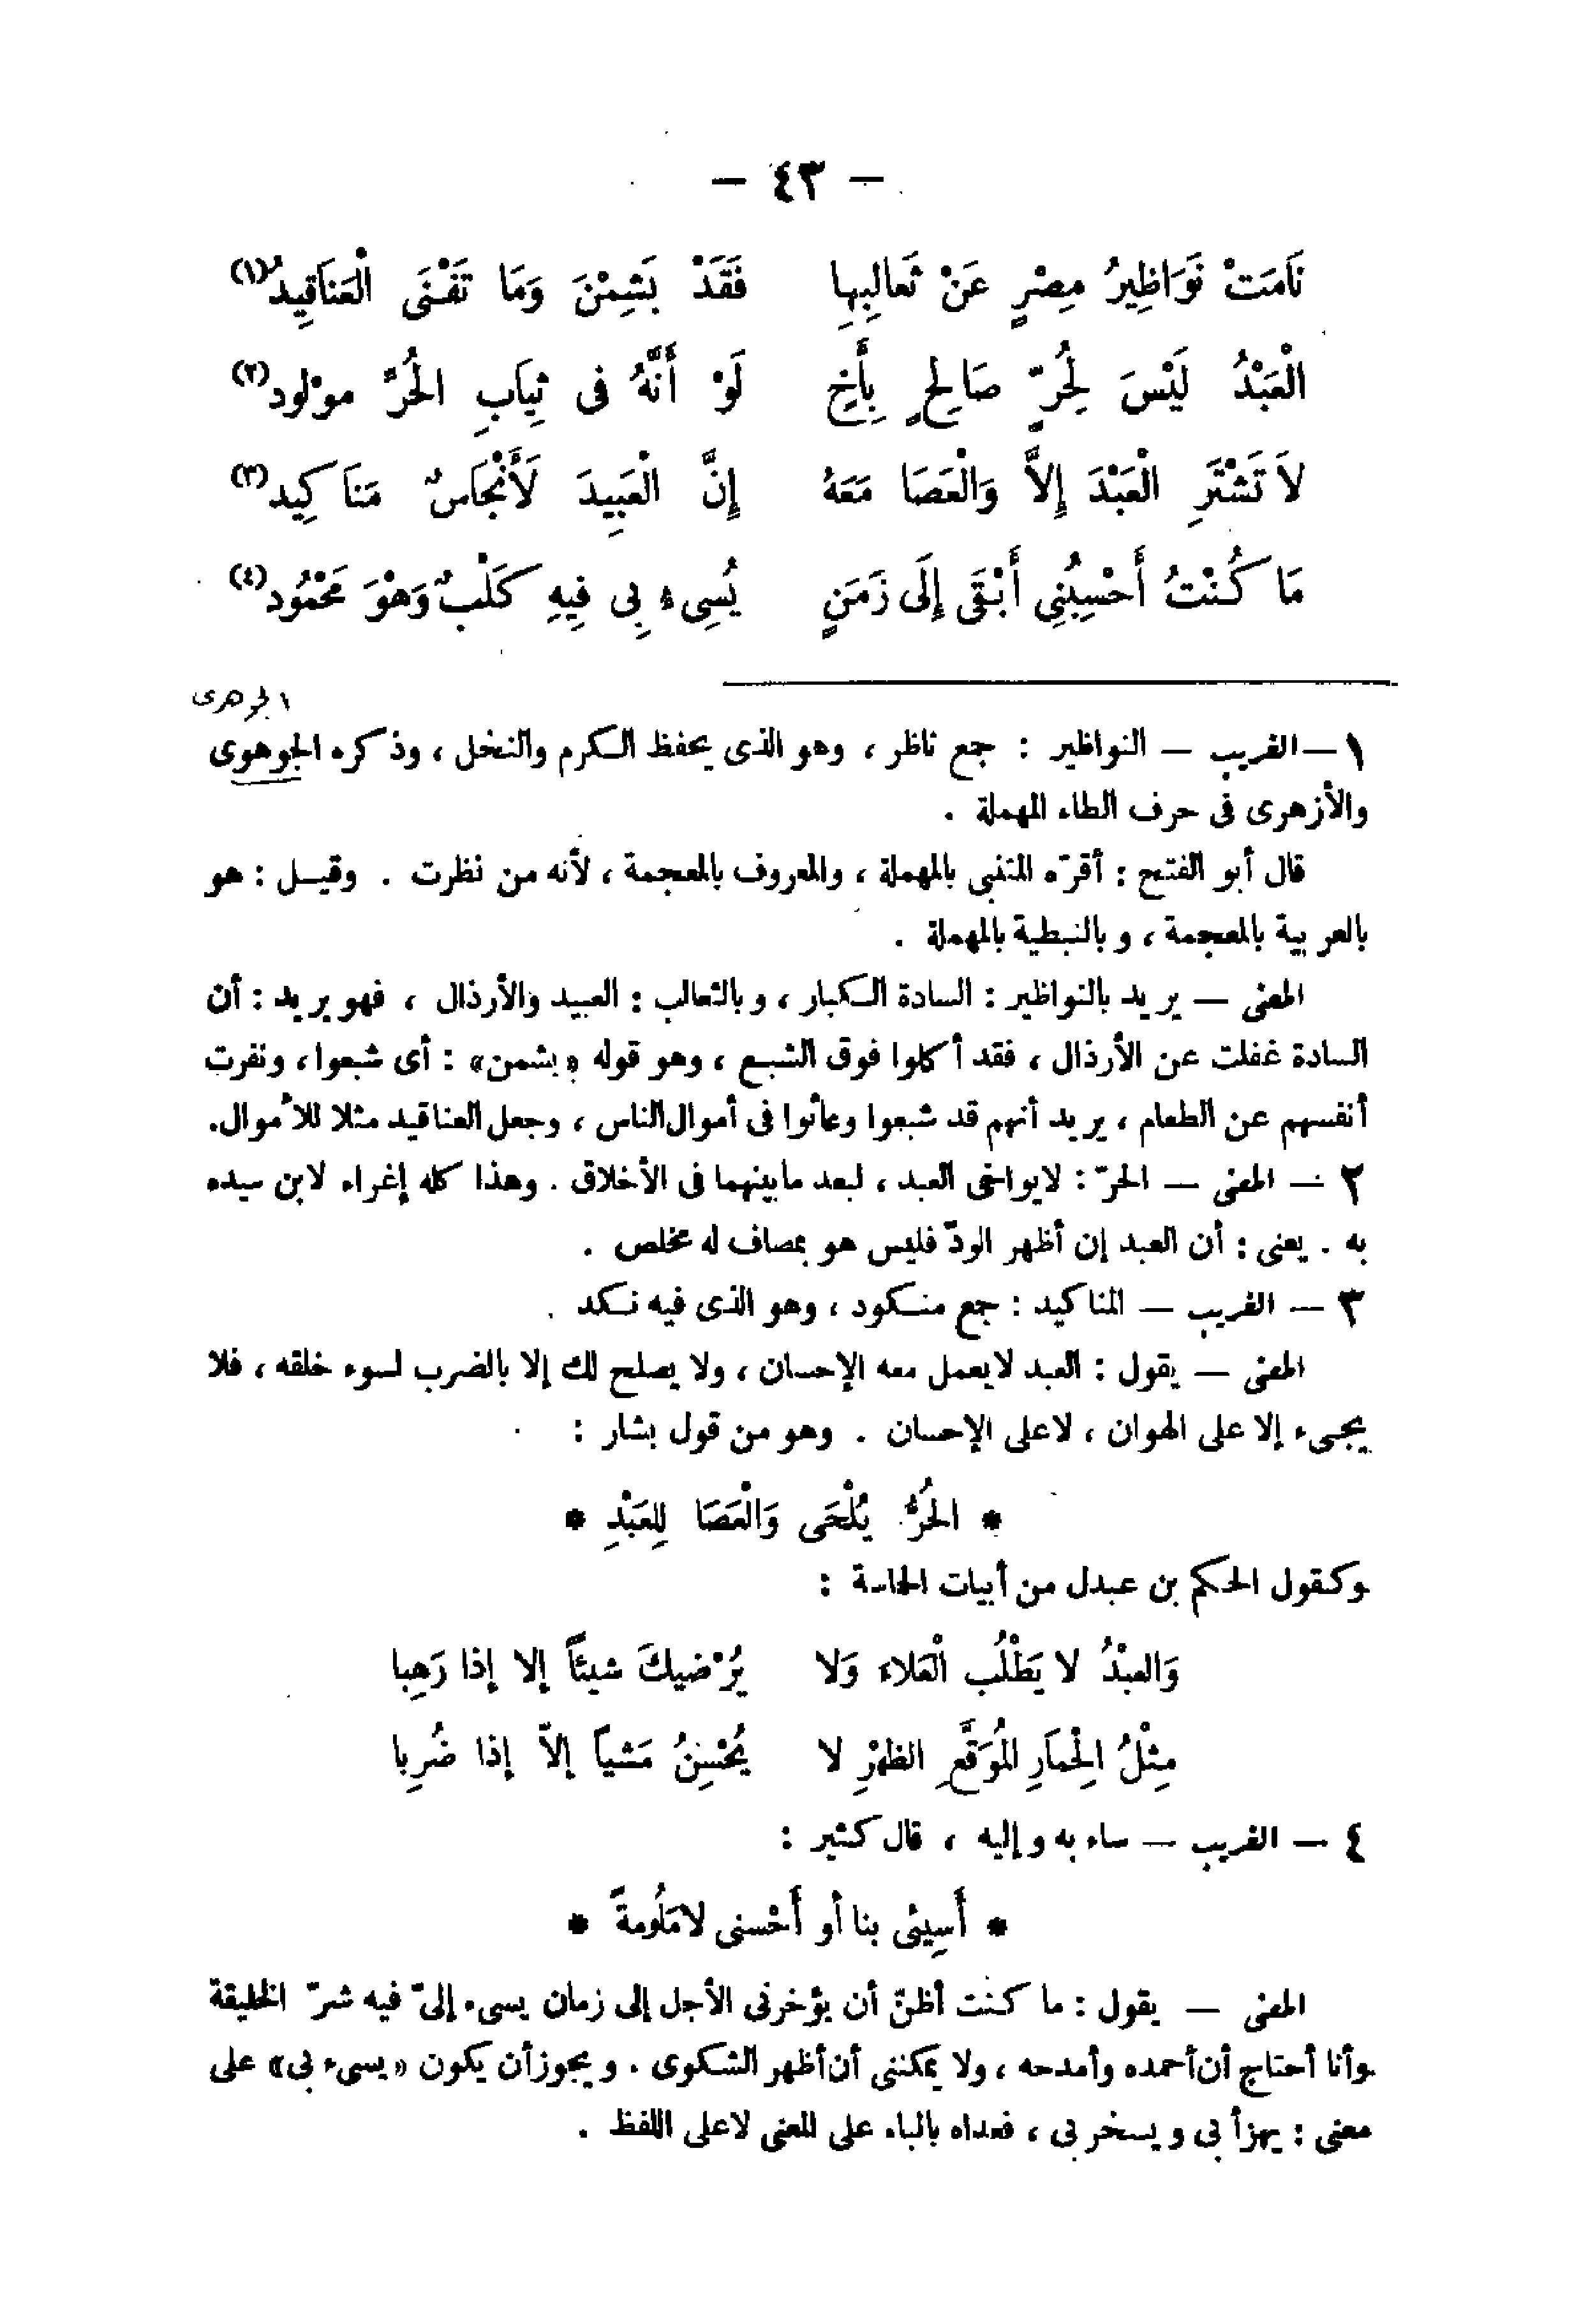 — ٤٣ —
نَامَتْ نَوَاظِيرُ مِصْرٍ عَنْ ثَعالِبِها فَقَدْ بَشِمْنَ وَمَا تَفْنَى الْعَنَاقِيدُ(١)
الْعَبْدُ لَيْسَ لِحُرٍّ صَالِحٍ بِأَخٍ لَوْ أَنَّهُ فى ثِيَابِ الحُرِّ موْلود(٢)
لاَ تَشْتَرِ الْعَبْدَ إِلاَّ وَالْعَصَا مَعَهُ إِنَّ الْعَبِيدَ لَأَنْجَاسٌ مَنَاكِيد(٣)
مَا كُنْتُ أَحْسِبُنِى أَبْقَى إِلَى زَمَنٍ يُسِىءُ بِى فِيهِ كَلْبٌ وَهْوَ مَحْمُود(٤)
الجوهرى
١ — الغريب — النواظير : جمع ناظر ، وهو الذى يحفظ الكرم والنخل ، وذكره الجوهوى
والأزهرى فى حرف الطاء المهملة .
قال أبو الفتح : أقرّه المتنبى بالمهملة ، والمعروف بالمعجمة ، لأنه من نظرت . وقيل : هو
بالعربية بالمعجمة ، وبالنبطية بالمهملة .
المعنى — يريد بالنواظير : السادة الكبار ، وبالثعالب : العبيد والأرذال ، فهو يريد : أن
السادة غفلت عن الأرذال ، فقد أكلوا فوق الشبع ، وهو قوله «بشمن» : أى شبعوا ، ونفرت
أنفسهم عن الطعام ، يريد أنهم قد شبعوا وعاثوا فى أموال الناس ، وجعل العناقيد مثلا للأموال.
٢ — المعنى — الحرّ : لا يواخى العبد ، لبعد ما بينهما فى الأخلاق . وهذا كله إغراء لابن سيده
به . يعنى : أن العبد إن أظهر الودّ فليس هو بمصاف له مخلص .
٣ — الغريب — المناكيد : جمع منكود ، وهو الذى فيه نكد .
المعنى — يقول : العبد لا يعمل معه الإحسان ، ولا يصلح لك إلا بالضرب لسوء خلقه ، فلا
يجىء إلا على الهوان ، لا على الإحسان . وهو من قول بشار :
* الحُرُّ يُلْحَى وَالْعَصَا لِلعَبْدِ *
وكقول الحكم بن عبدل من أبيات الحماسة :
وَالعبْدُ لا يَطْلُب الْعَلاءَ وَلا يُرْضيكَ شيئاً إلا إذا رَهِبا
مِثْلُ الحِمَارِ المُوَقَّعِ الظهْرِ لا يُحْسِنُ مَشياً إلاّ إذا ضُرِبا
٤ — الغريب — ساء به وإليه ، قال كثير :
* أَسِيئى بنا أو أَحْسنى لا مَلُومةً *
المعنى — يقول : ما كنت أظنّ أن يؤخرنى الأجل إلى زمان يسىء إلىّ فيه شرّ الخليقة
وأنا أحتاج أن أحمده وأمدحه ، ولا يمكننى أن أظهر الشكوى . ويجوز أن يكون «يسىء بى» على
معنى : يهزأ بى ويسخر بى ، فعداه بالباء على المعنى لا على اللفظ .